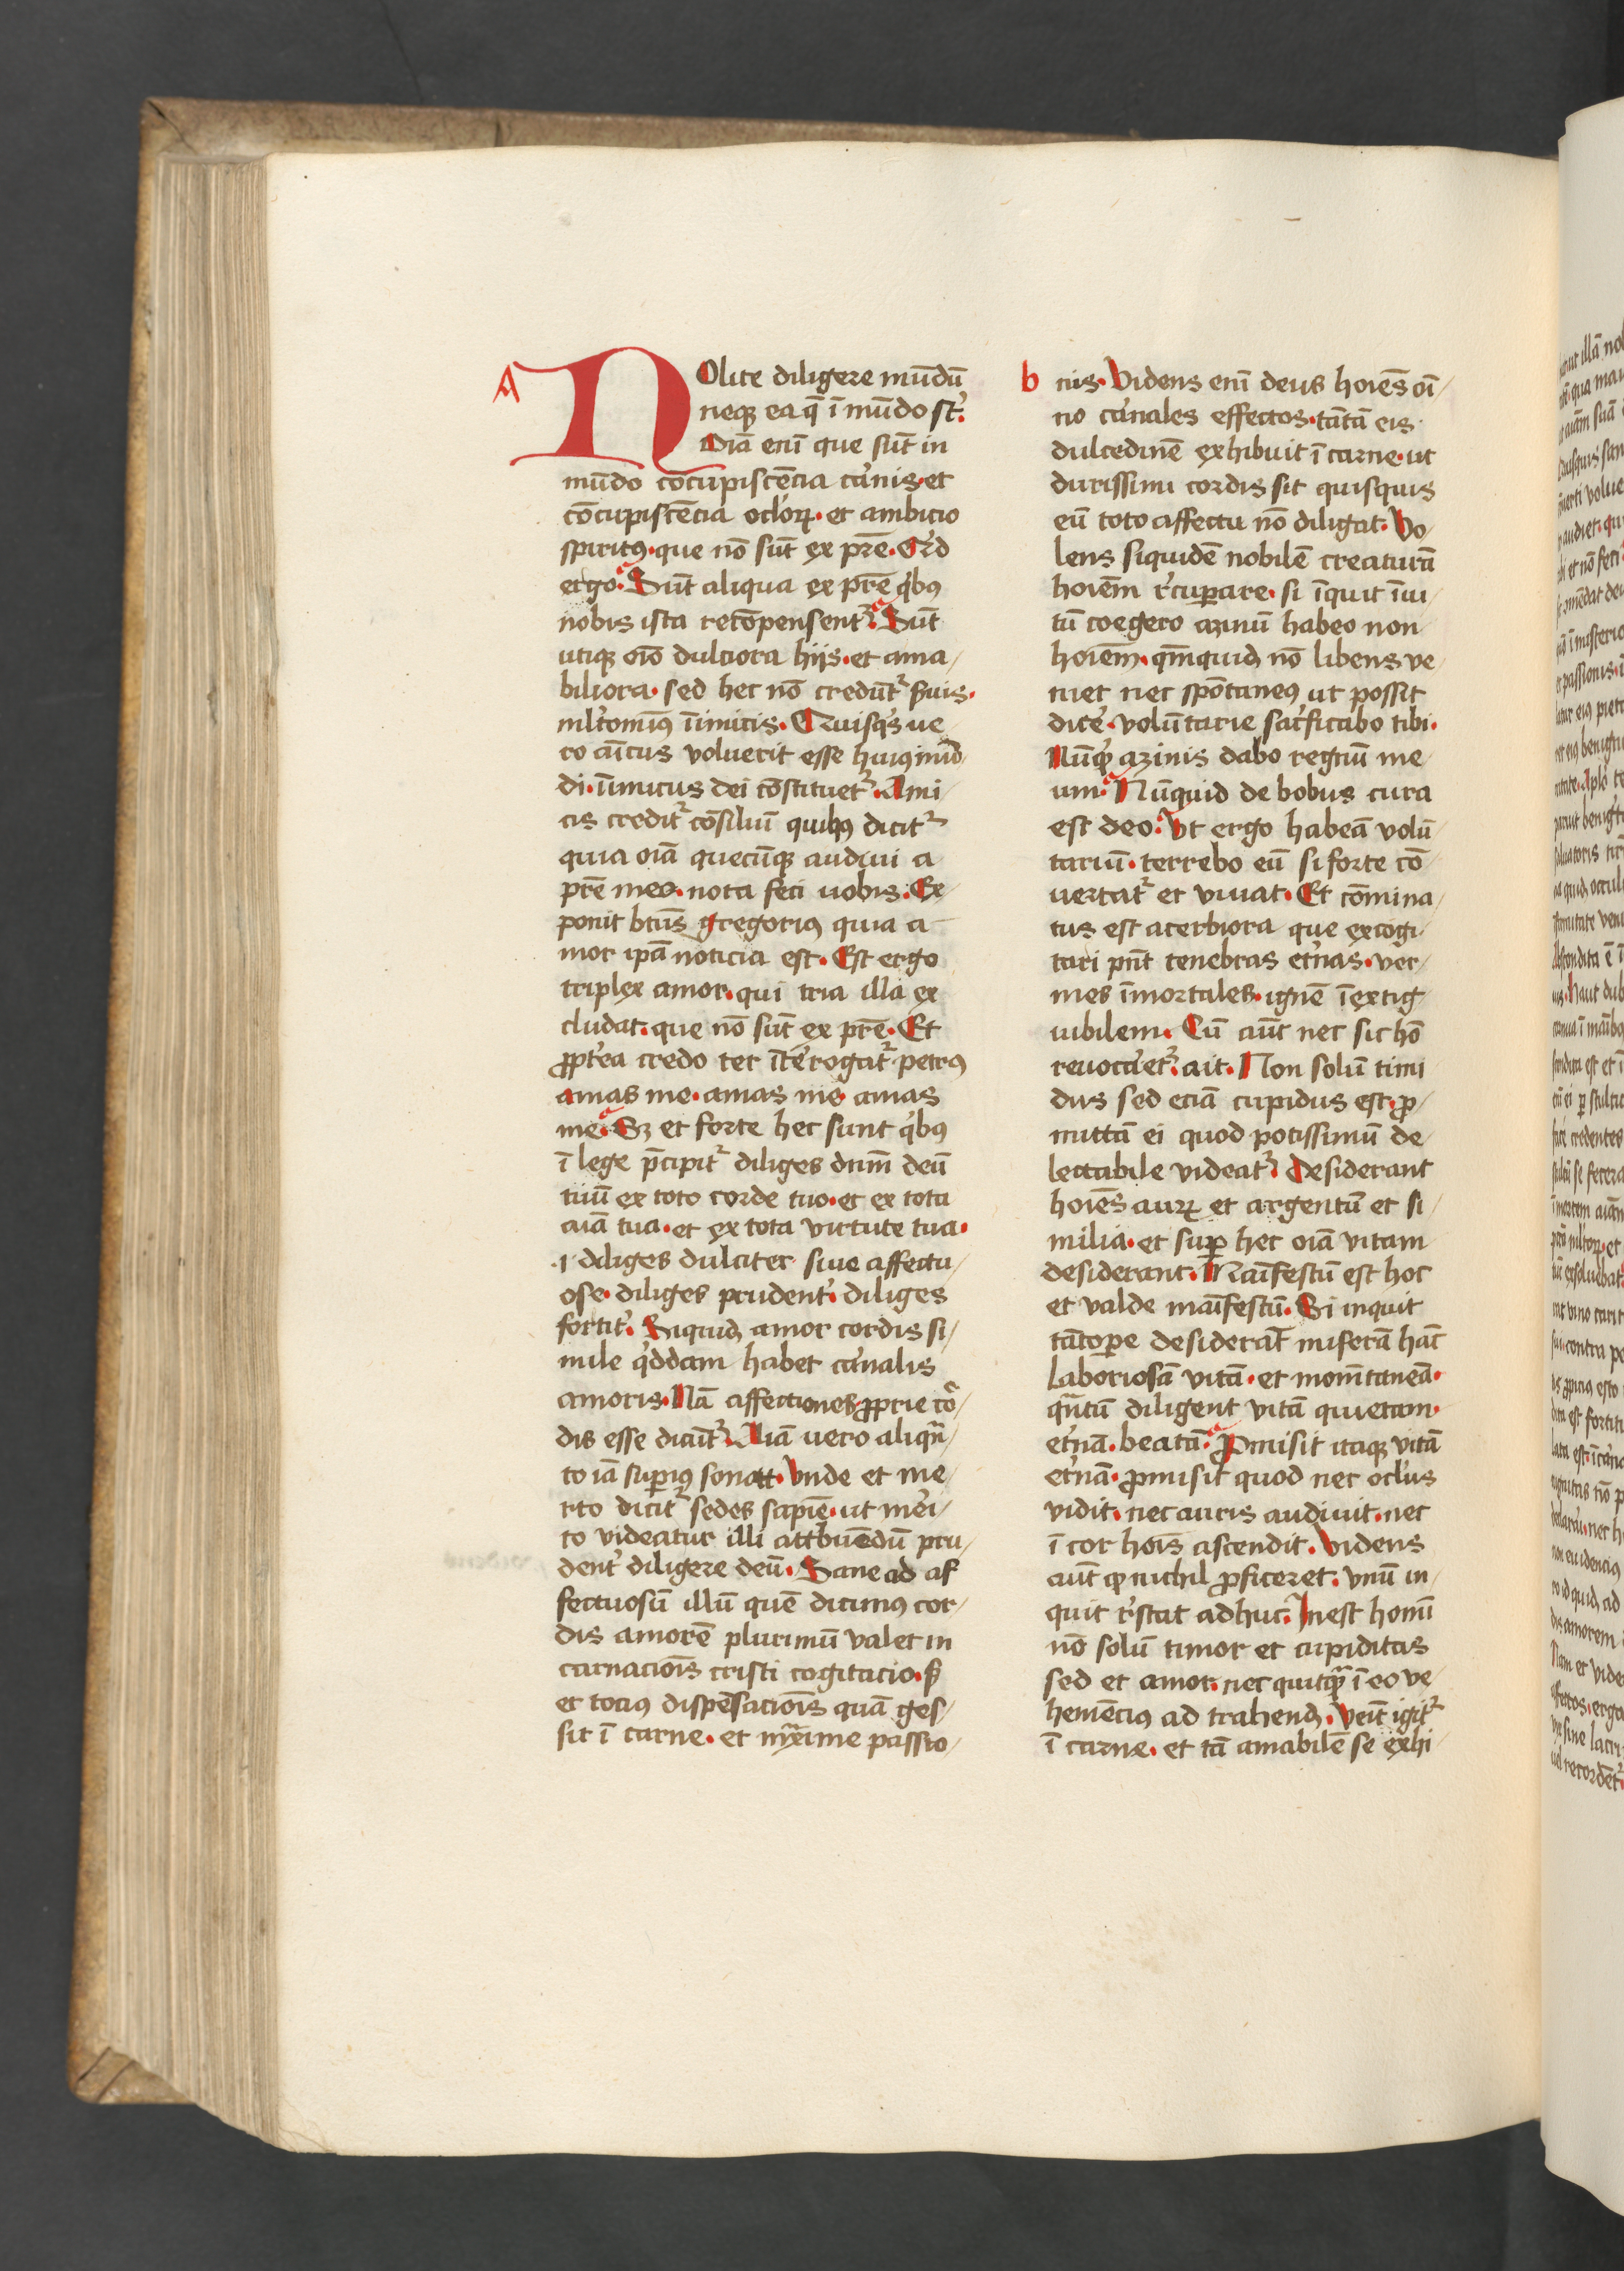 A
NOlite diligere mūdū
neqꝫ ea q̄ ī mūdo st᷒.
Oīā enī que sūt in
mūdo cōcupiscēcia ca᷒nis·et
cōcupiscēcia oclo᷒ꝝ·et ambicio
spiritꝰ·que nō sūt ex pr̄e·Qͥd
ergo. Sūt aliqua ex pr̄e qͥbꝰ
nobis ista recōpensent᷑. Sūt
utiqꝫ oīo dulciora hijs·et ama/
biliora· sed hec nō credūt᷑ suis·
ml᷒tomīꝰ īimicis· Quisqͥs ue
ro aīcus voluerit esse huiꝰ mū
di·īimicus dei cōstituet᷑·Ami
cis credit᷑ cōsiliū quibꝰ dicit᷑
quia oīa quecūqꝫ audiui a
pr̄e meo·nota feci uobis·Ex
ponit btūs gregoriꝰ quia a
mor ip̄a noticia est·Est ergo
triplex amor·qui tria illa ex
cludat·que nō sūt ex pr̄e·Et
ꝓpte᷒a credo ter īte᷒rogat᷑·petrꝰ
amas me·amas me amas
me·Sꝫ et forte hec sunt qͥbꝰ
ī lege p̄cipit᷑ diliges dnm̄ deū
tuū ex toto corde tuo·et ex tota
aīa tua·et ex tota virtute tua·
·i·diliges dulciter siue affectu/
ose·diliges prudent᷒·diliges
fortit᷒. Siquidꝫ amor cordis si/
mile qͦddam habet ca᷒nalis
amoris·Nā affectiones ꝓprie co᷒/
dis esse dicūt᷑·Aīa uero aliqͣn/
to iā suꝑiꝰ sonat·Vnde et me/
rito dicit᷑ sedes sapīe·ut me᷒i/
to videatur illi attͥbuēdū pru/
dent᷒ diligere deū·Sane ad af
fectuosū illū quē dicimꝰ cor/
dis amorē plurimū valet in
carnacioīs cristi cogitacio·sꝫ
et tociꝰ dispēsacioīs quā ges/
sit ī carne·et mͣxime passio/
b
nis·Videns enī deus hoīes oī/
no ca᷒nales effectos·tātā eis
dulcedinē exhibuit ī carne·ut
durissimi cordis sit quisquis
eū toto affectu nō diligat·Vo/
lens siquidē nobilē creaturā
hoīem r᷒cuꝑare·si īquit īui/
tū coegero azinū habeo non
hoīem·qm̄quidꝫ nō libens ve/
niet nec spōtaneꝰ ut possit
dice᷒·volūtarie sac᷒ficabo tibi·
Nūqͥd azinis dabo regnū me/
um·Nūquid de bobus cura
est deo·Vt ergo habeā volū/
tariū·terrebo eū si forte cō/
uertat᷑ et viuat·Et cōmina/
tus est acerbiora que excogi/
tari pn̄t tenebras et᷒nas·ver/
mes īmortales·ignē īextig/
uibilem·Cū aūt nec sic hō
reuoca᷒et᷑·ait·Non solū timi
dus sed eciā cupidus est·ꝓ/
mittā ei quod potissimū de/
lectabile videat᷑·Desiderant
hoīes auꝝ et argentū et si/
milia·et suꝑ hec oīa vitam
desiderant·Māifestū est hoc
et valde māifestū·Si inquit
tātoꝑe desiderāt miserā hāc
laboriosā vitā·et momītaneā·
qͣntū diligent vitā quietam·
et᷒nā·beatā·Ꝓmisit itaqꝫ vitā
et᷒nā·ꝓmisit quod nec ocl᷒us
vidit·nec auris audiuit·nec
ī cor hoīs ascendit·Videns
aūt qꝫ nichil ꝓficeret·vnū in/
quit r᷒stat adhuc·Inest homī
nō solū timor et cupiditas
sed et amor·nec quitqͣꝫ ī eo ve/
hemēciꝰ ad trahendꝫ·Venīt igit᷑
ī carne·et tā amabilē se exhi/